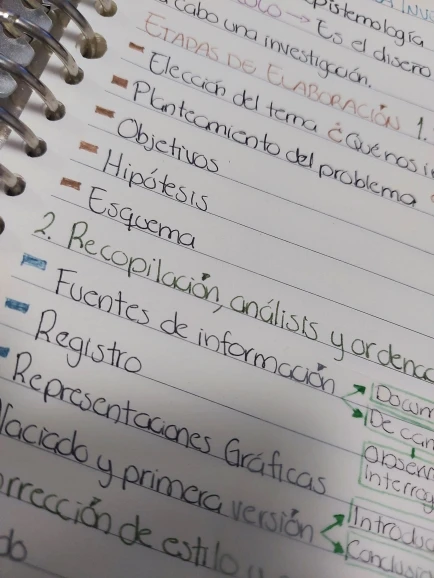 Epistemología
cabo una investigación.
Es el diseño
ETAPAS DE ELABORACIÓN 1.
- Elección del tema ¿Qué nos
- Planteamiento del problema
- Objetivos
- Hipótesis
- Esquema
2. Recopilación, análisis y ordena
- Fuentes de información
Docum
De cam
- Registro
Observ
interrog
- Representaciones Gráficas
Vaciado y primera versión
Introduc
Conclusio
rrección de estilo y
do